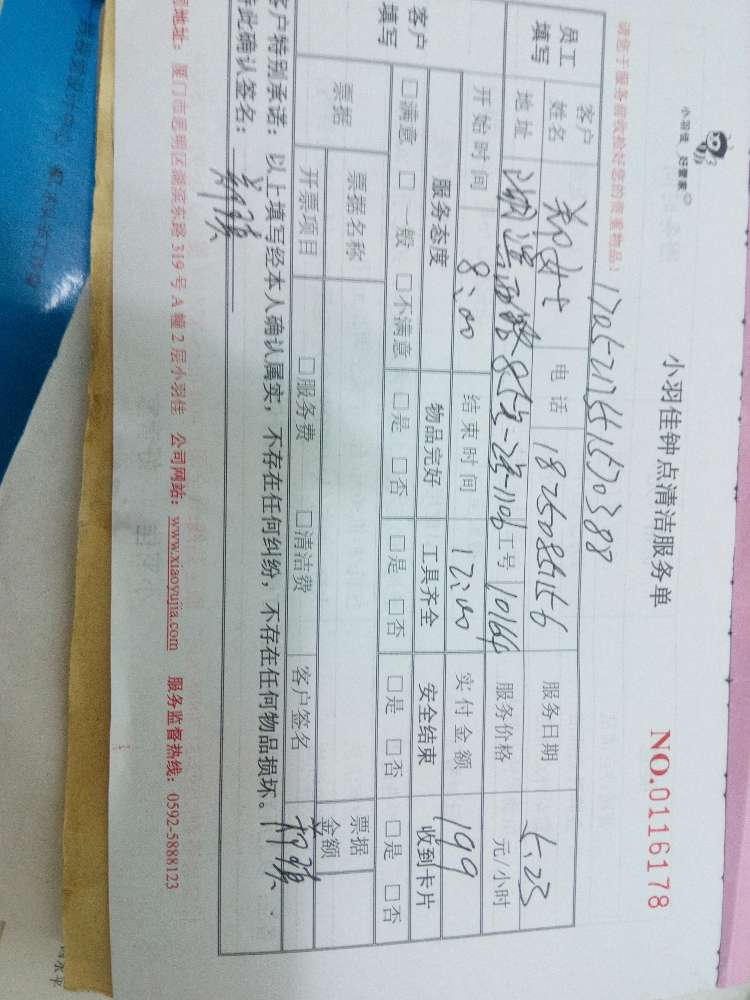 小羽佳 好管家
小羽佳钟点清洁服务单
NO.0116178
请您于服务前收检好您的贵重物品！
员工填写
客户姓名
郑女士
电话
18250851156
服务日期
5.23
地址
工号
10164
服务价格
元/小时
客户填写
开始时间
8:00
结束时间
12:00
实付金额
199
服务态度
物品完好
工具齐全
安全结束
收到卡片
□满意 □一般 □不满意
□是 □否
□是 □否
□是 □否
□是 □否
票据
票据名称
票据金额
开票项目
□服务费 □清洁费
客户签名
客户特别承诺：以上填写经本人确认属实，不存在任何纠纷，不存在任何物品损坏。
此确认签名：
地址：厦门市思明区湖滨东路319号A幢2层小羽佳 公司网站：www.xiaoyujia.com 服务监督热线：0592-5888123